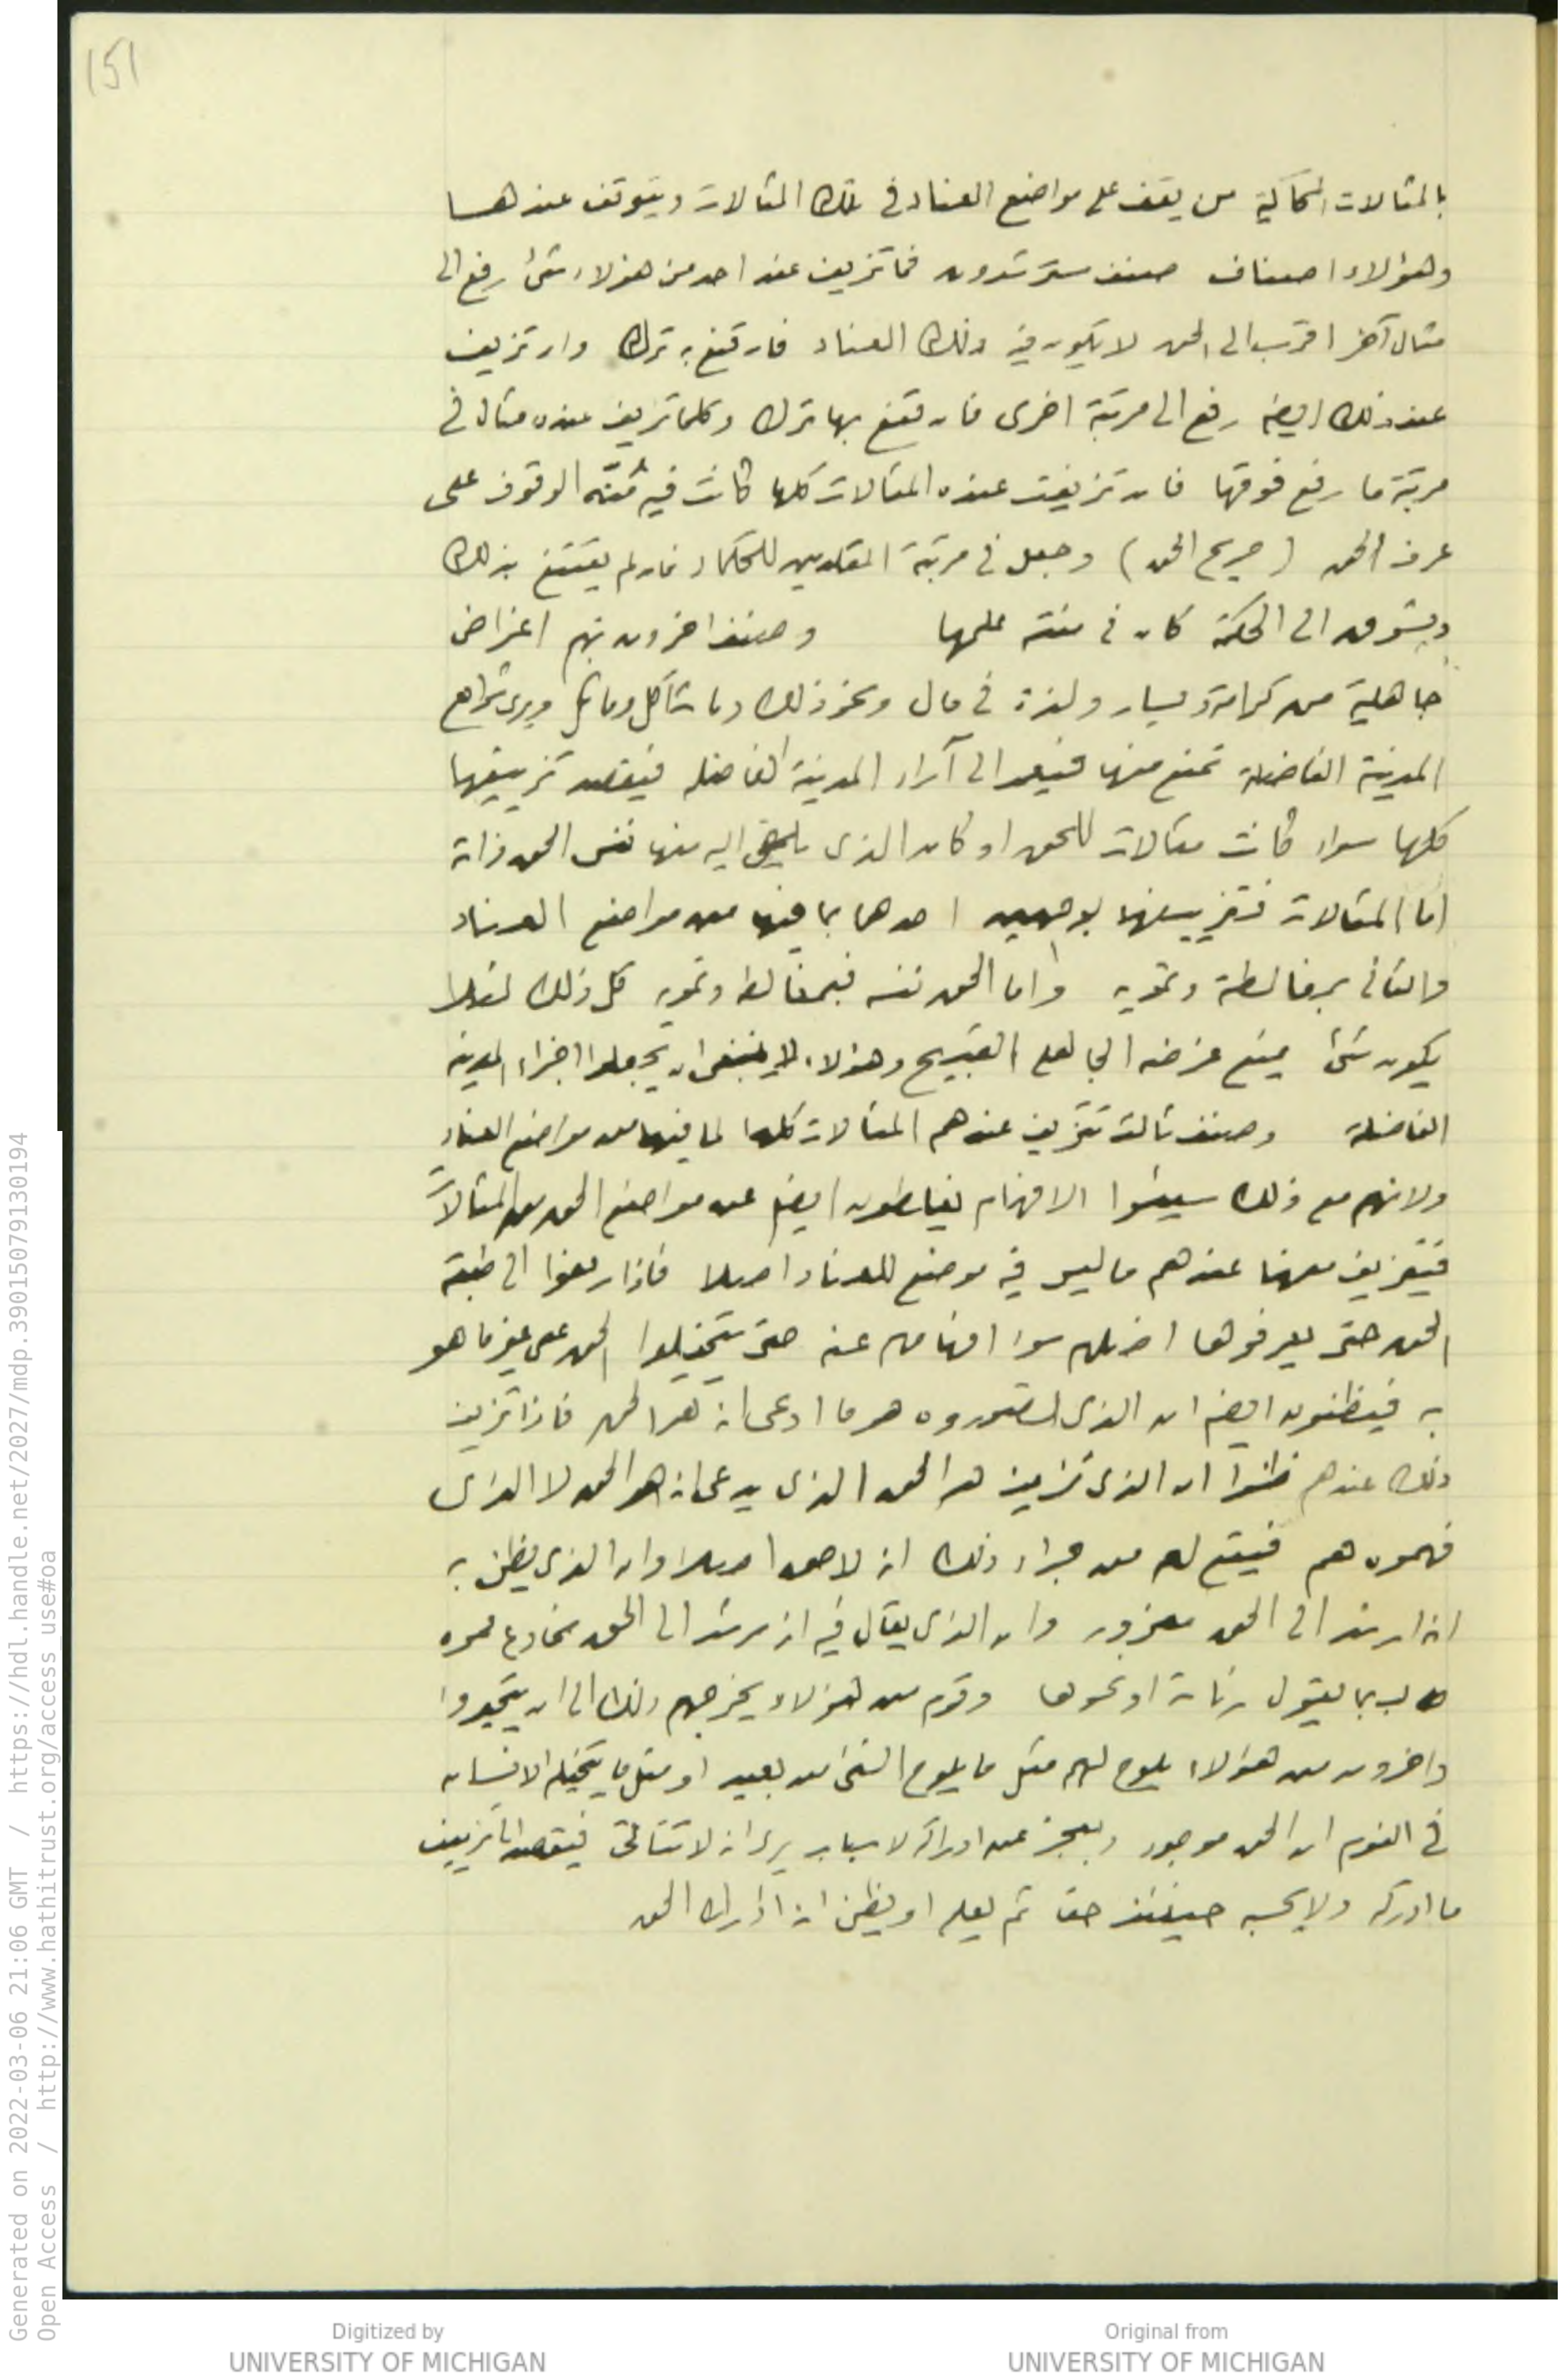 151
بالمثالات المحاكية من يقف على مواضع العناد في تلك المثالات ويتوقف عندها
وهؤلاء اصناف صنف مسترشدون فما تزيف عند احد من هؤلاء شئ رفع الى
مثال آخر اقرب الى الحق لا يكون فيه ذلك العناد فان قنع به ترك وان تزيف
عند ذلك ايضا رفع الى مرتبة اخرى فان قنع بها ترك وكلما تزيف عنده مثال في
مرتبة ما رفع فوقها فان تزيفت عنده المثالات كلها كانت فيه مُنّة الوقوف على
عرف الحق (صريح الحق) وجعل في مرتبة المقلدين للحكماء فان لم يقتنع بذلك
ويشوق الى الحكمة كان في منته علمها وصنف اخرون بهم اغراض
جاهلية من كرامة ويسار ولذة في مال ونحو ذلك وما شاكل وماثل ويرى شرائع
المدينة الفاضلة تمنع منها فيعمد الى آراء المدينة الفاضلة فيقصد تزييفها
كلها سواء كانت مثالات للحق او كان الذى يلقى اليه منها نفس الحق ذاته
اما المثالات فتزييفها بوجهين احدهما بما فيها من مواضع العناد
والثانى بمغالطة وتمويه واما الحق نفسه فبمغالطة وتمويه كل ذلك لئلا
يكون شئ يمنع غرضه الجاهلى القبيح وهؤلاء لا ينبغى ان يجعلوا اجزاء المدينة
الفاضلة وصنف ثالث تتزيف عندهم المثالات كلها لما فيها من مواضع العناد
ولانهم مع ذلك سيئوا الافهام يغلطون ايضا عن مواضع الحق من المثالات
فيتزيف منها عندهم ما ليس فيه موضع للعناد اصلا فاذا رفعوا الى طبقة
الحق حتى يعرفوها اضلهم سوء افهامهم عنه حتى يتخيلوا الحق على غير ما هو
به فيظنون ايضا ان الذى تصوروه هو ما ادعى انه هو الحق فاذا تزيف
ذلك عندهم ظنوا ان الذى تزيف هو الحق الذى يدعى انه هو الحق لا الذى
فهموه هم فيقع لهم من جراء ذلك انه لا حق اصلا وان الذى يظن به
انه ارشد الى الحق مغرور وان الذى يقال فيه انه مرشد الى الحق مخادع مموه
طالب بما يقول رئاسة او نحوها وقوم من هؤلاء يخرجهم ذلك الى ان يتحيروا
واخرون من هؤلاء يلوح لهم مثل ما يلوح الشئ من بعيد او مثل ما يتخيله الانسان
في النوم ان الحق موجود ويعجز عن ادراكه لاسباب يرى انه لا تتأتى فيقصد الى تزييف
ما ادركه ولا يحسبه حينئذ حقا ثم يعلم او يظن انه ادرك الحق
Generated on 2022-03-06 21:06 GMT / https://hdl.handle.net/2027/mdp.39015079130194
Open Access / http://www.hathitrust.org/access_use#oa
Digitized by
UNIVERSITY OF MICHIGAN
Original from
UNIVERSITY OF MICHIGAN